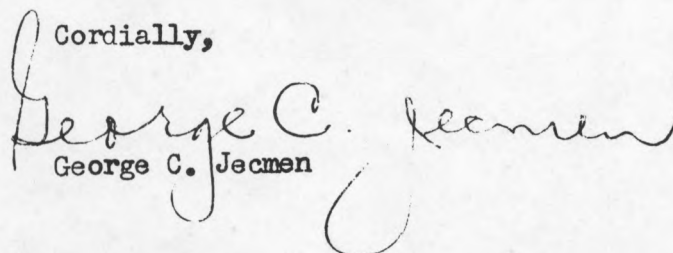 Cordially,
George C. Jecmen
George C. Jecmen